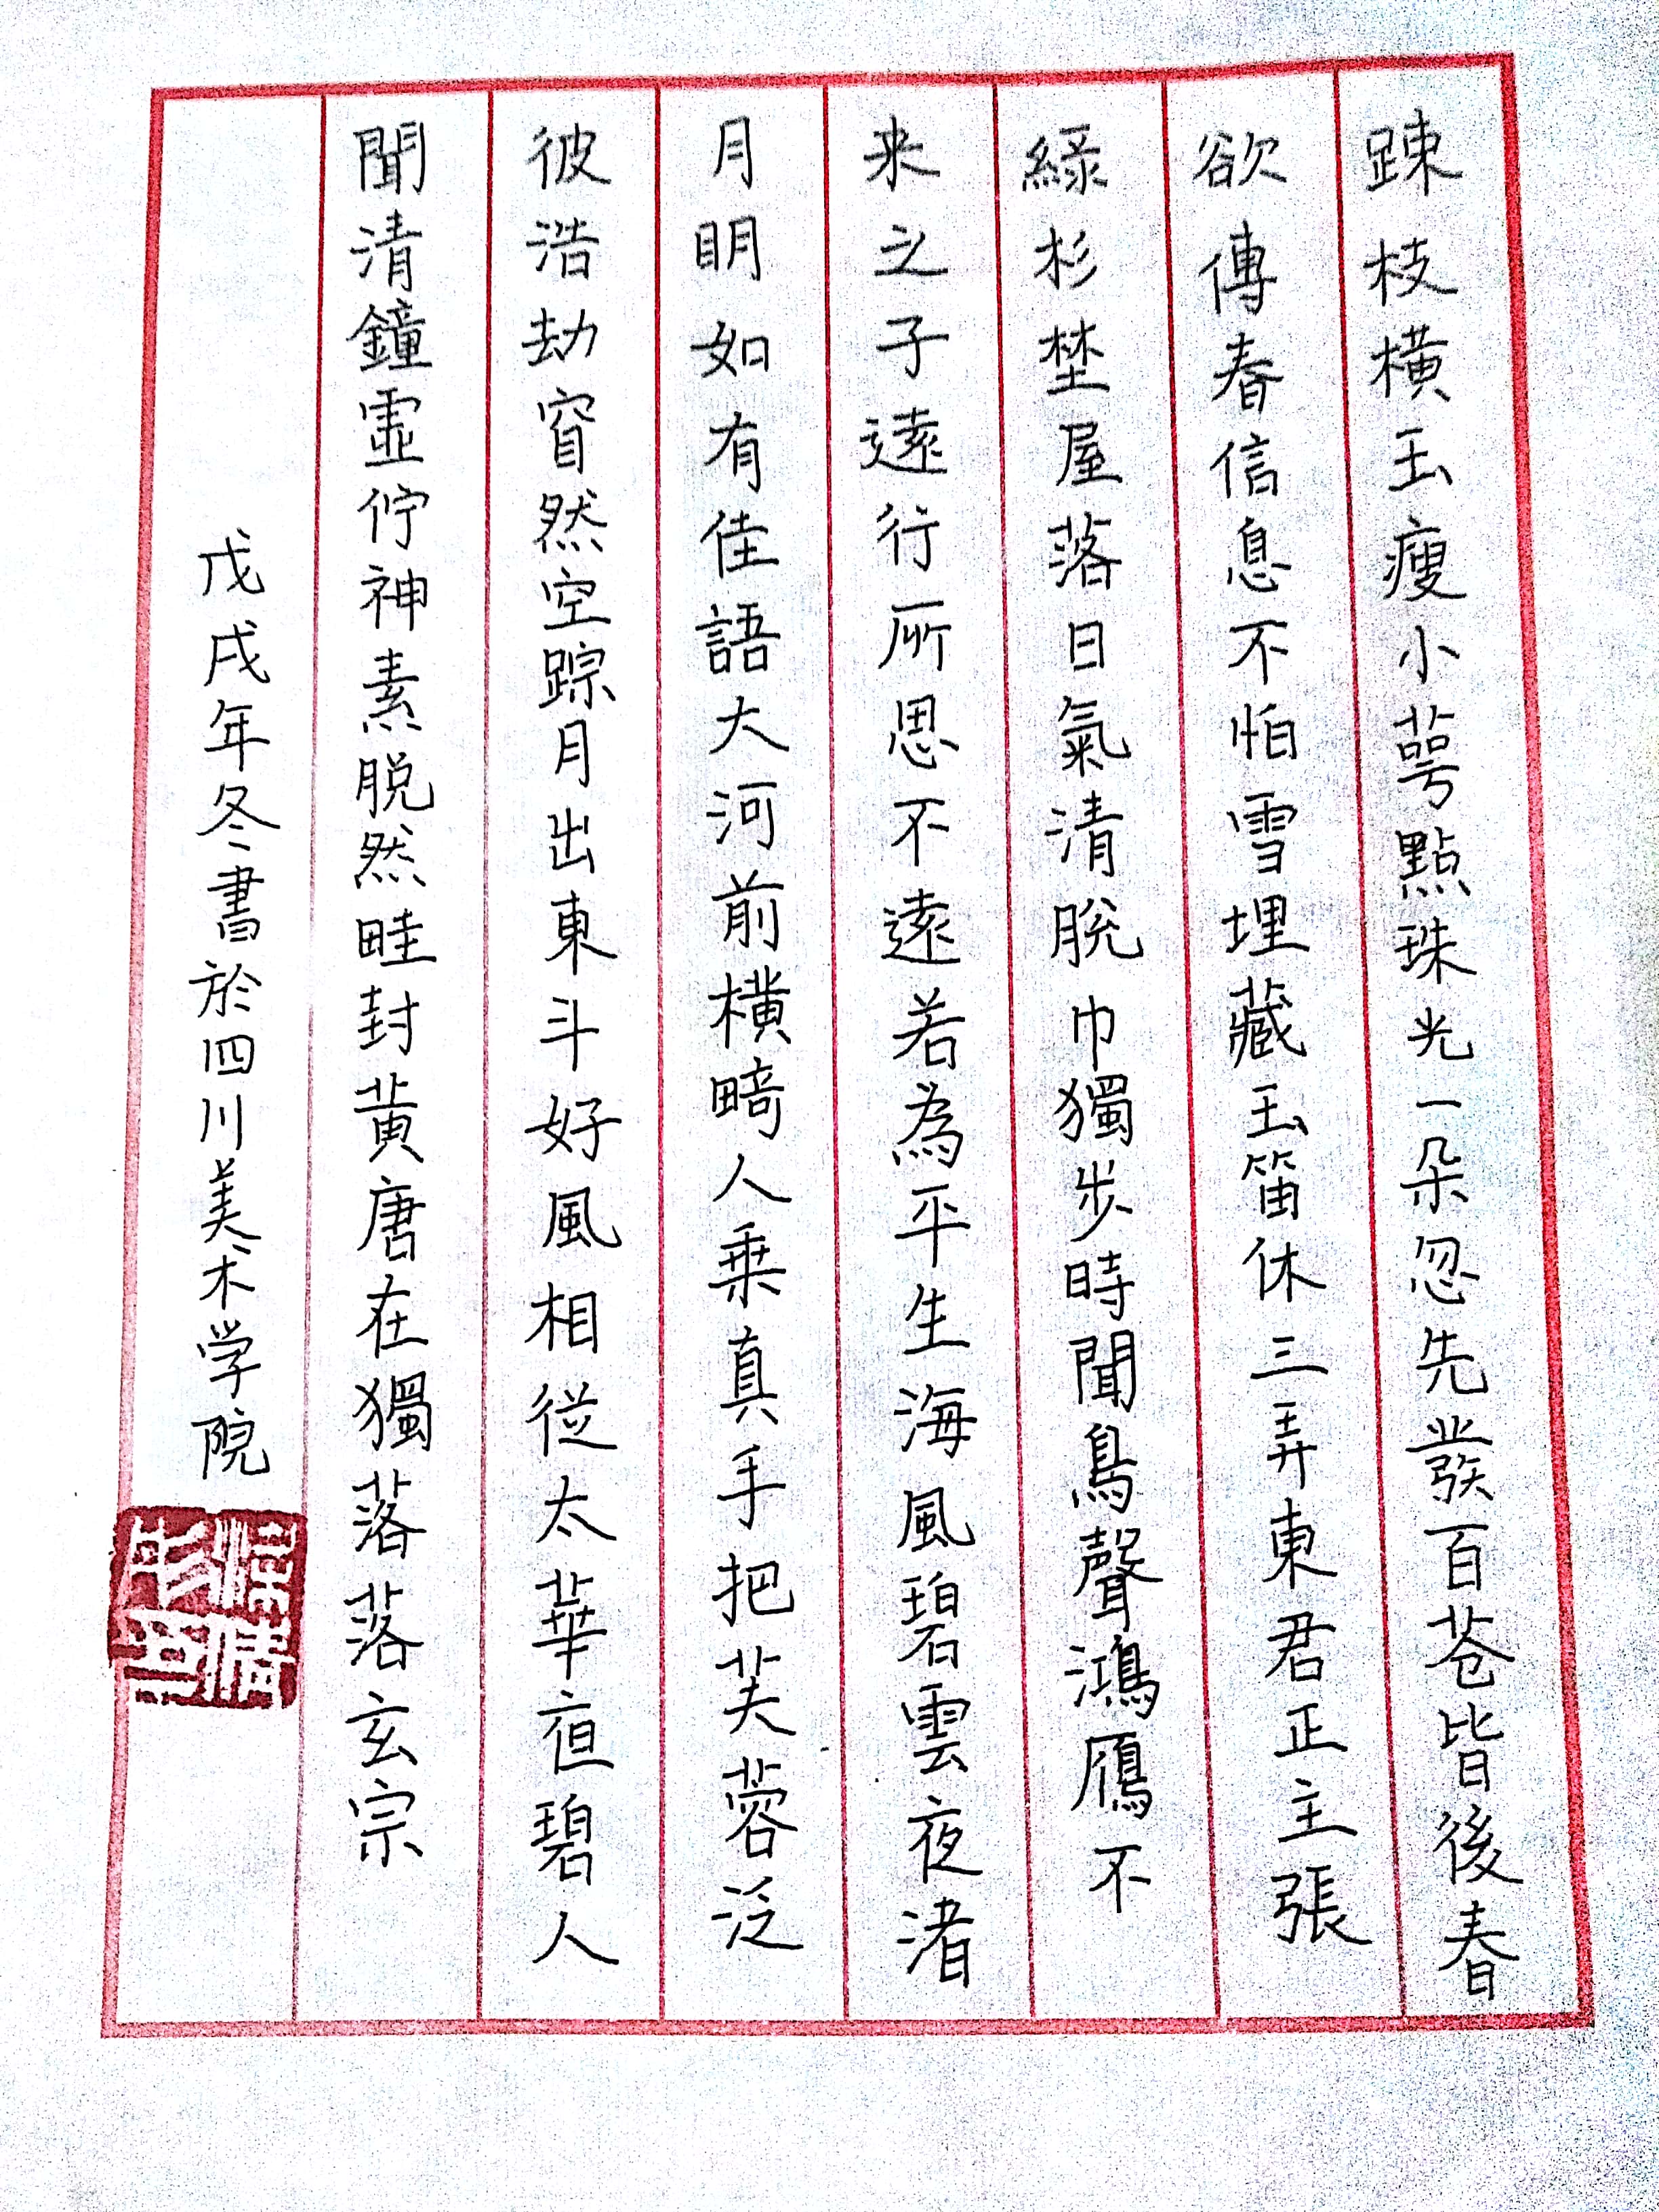 踈枝横玉瘦小萼點珠光一朵忽先發百苍皆後春
欲傳春信息不怕雪埋藏玉笛休三弄東君正主張
綠杉埜屋落日氣清脫巾獨步時聞鳥聲鴻鴈不
来之子遠行所思不遠若為平生海風碧雲夜渚
月明如有佳語大河前横畸人乘真手把芙蓉泛
彼浩劫窅然空踪月出東斗好風相從太華夜碧人
聞清鐘虛佇神素脱然畦封黄唐在獨落落玄宗
戊戌年冬書於四川美术学院